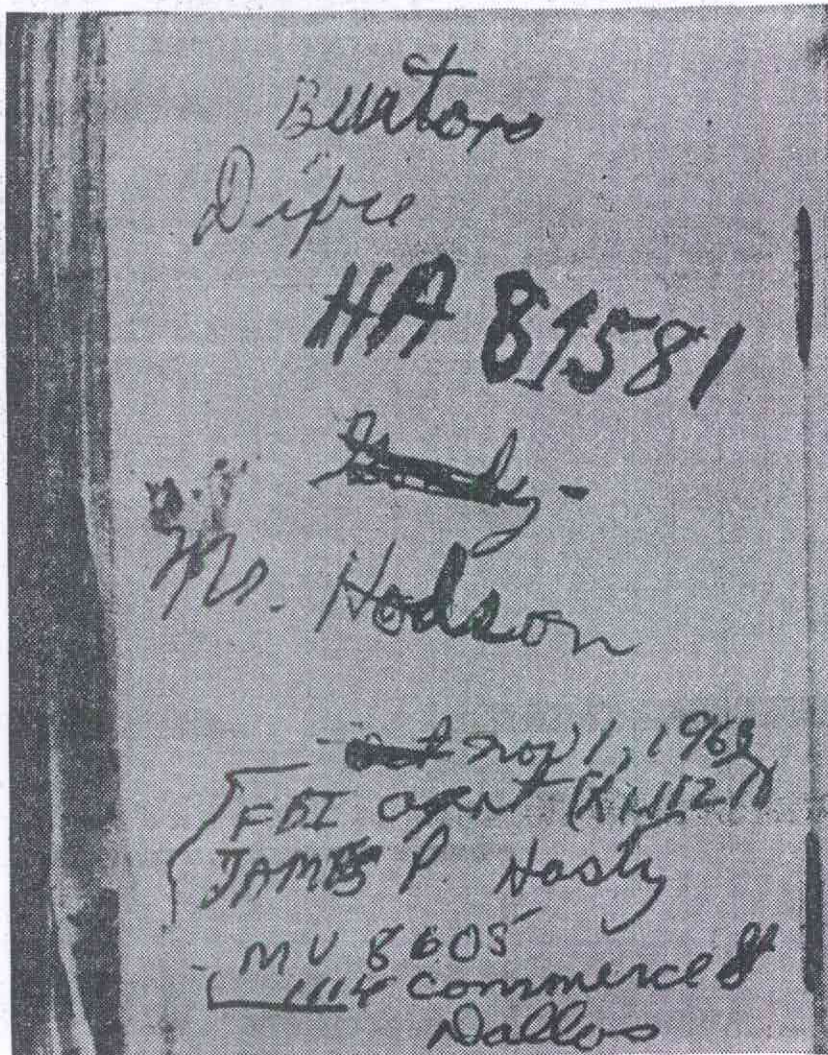 Burton
Dipre
HA 81581
Mr. Hodson
Nov 1, 1963
FBI agent
JAMES P. Hasty
MU 8605
1114 Commerce St
Dallas